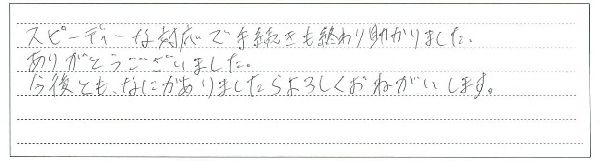 スピーディーな対応で手続きも終わり助かりました。
ありがとうございました。
今後とも、なにがありましたらよろしくおねがいします。